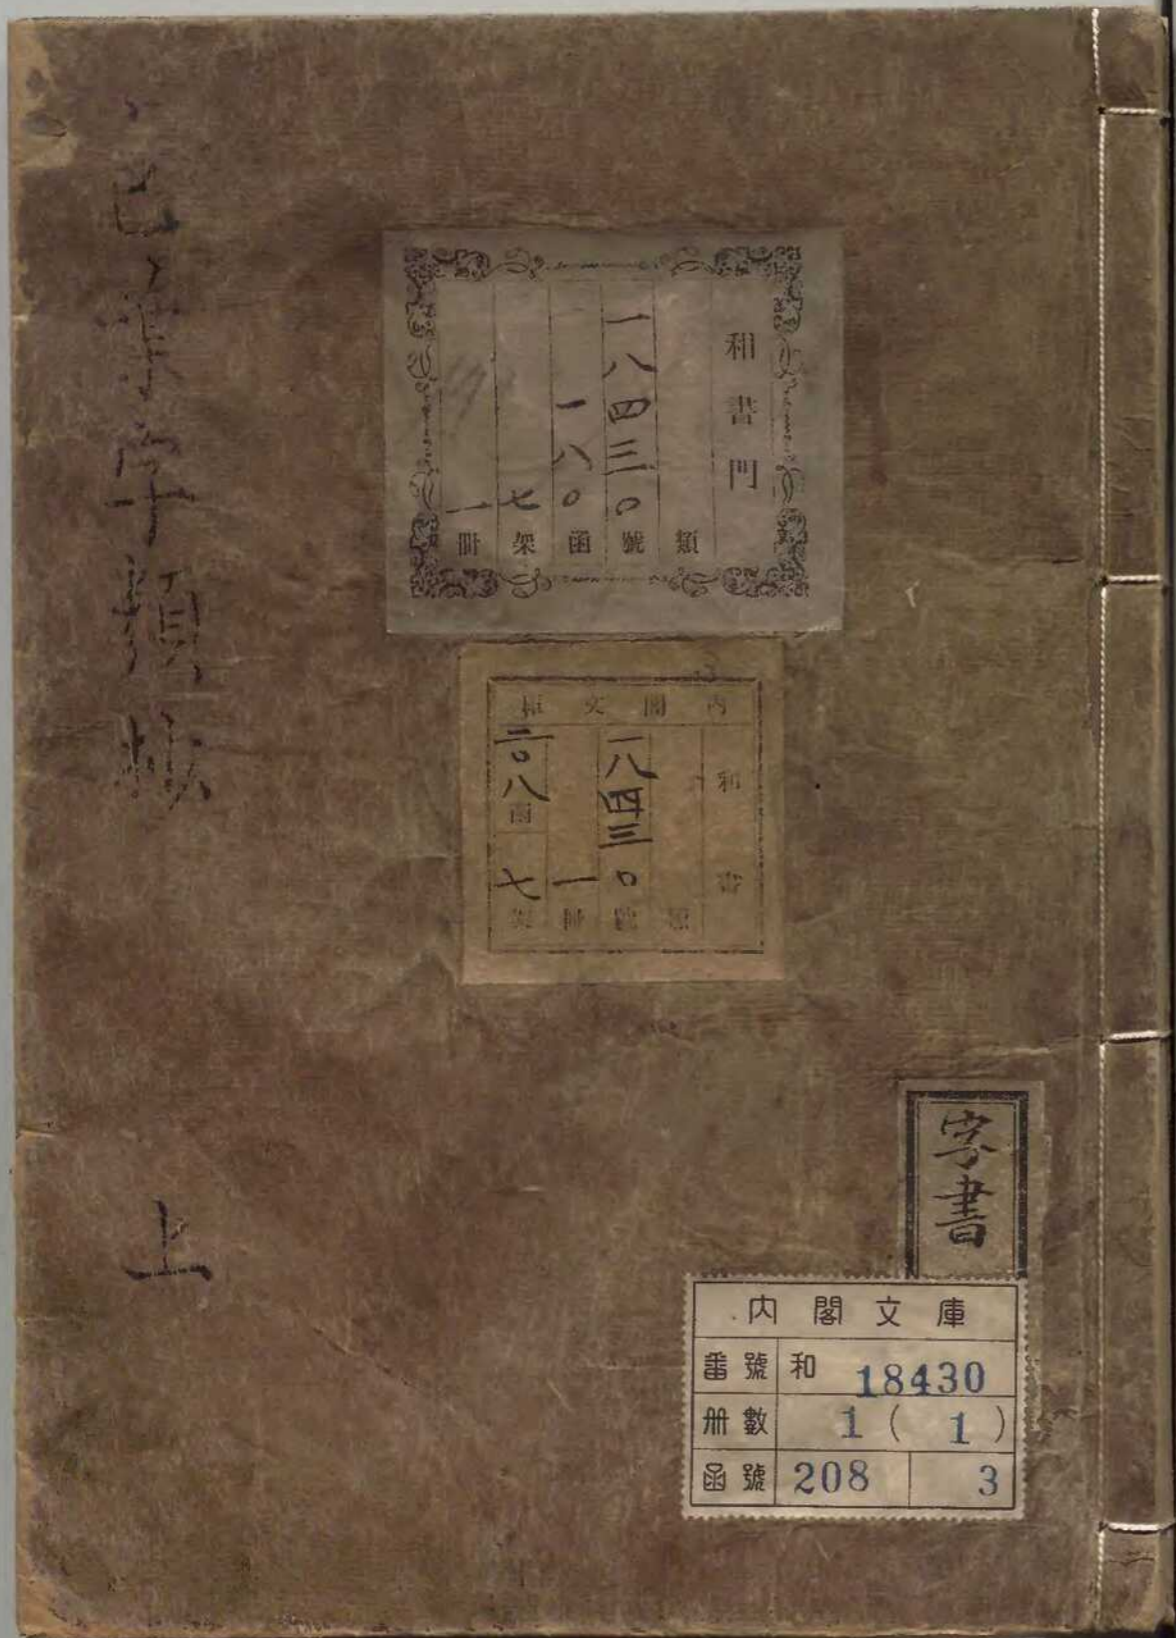 字類抄
上
和書門
類
一八四三〇號
一八〇函
七架
一冊
內閣文庫
和書
類
一八四三〇號
一冊
二〇八函
七架
字書
內閣文庫
番號 和 18430
册數 1 ( 1 )
函號 208 3